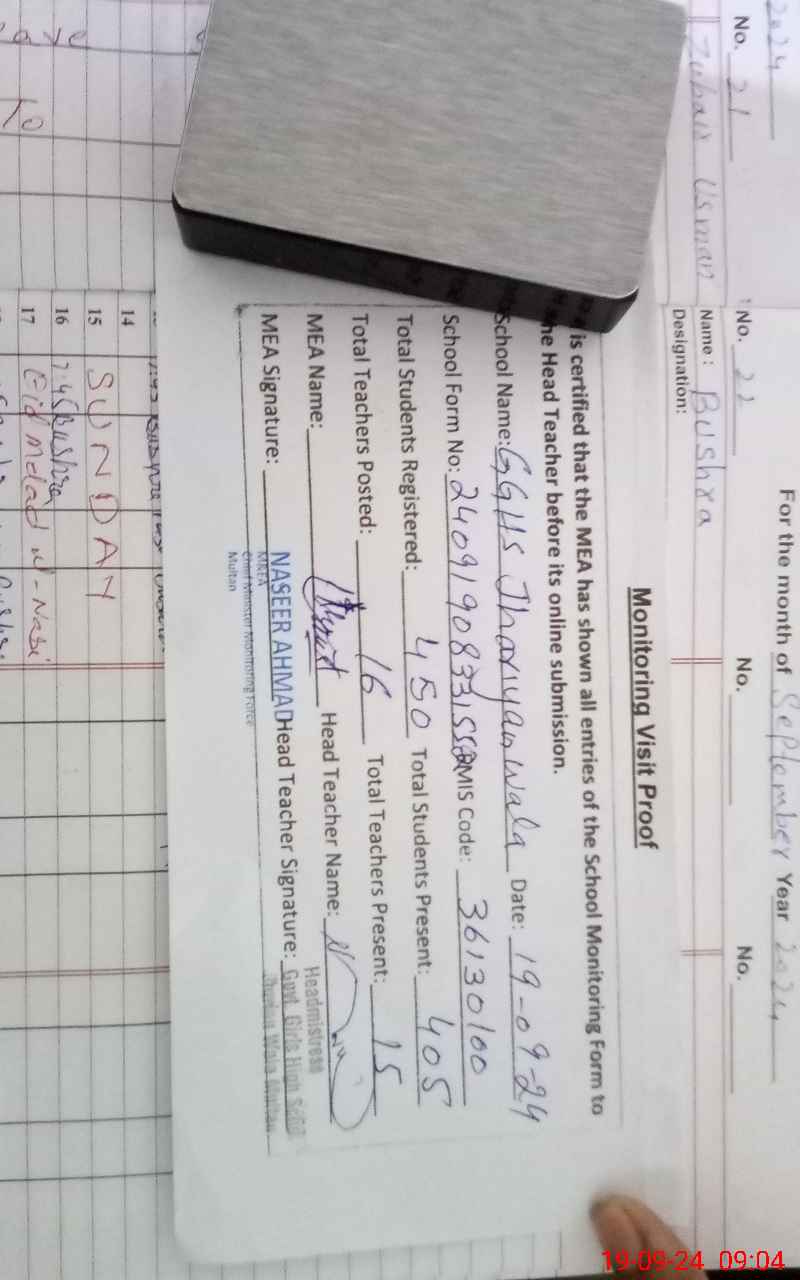 2024
For the month of September Year 2024
No. 21
No. 22
No.
No.
Zubair Usman
Name : Bushra
Designation:
Monitoring Visit Proof
is certified that the MEA has shown all entries of the School Monitoring Form to
the Head Teacher before its online submission.
School Name: GGHS Jhariyan wala Date: 19-09-24
School Form No: EMIS Code: 36130100
Total Students Registered: 450 Total Students Present: 405
Total Teachers Posted: 16 Total Teachers Present: 15
MEA Name: Head Teacher Name:
MEA Signature: NASEER AHMAD Head Teacher Signature:
MREA
Chief Minister Monitoring Force
Multan
Headmistress
Govt. Girls High
Wala Multan
14
15 SUNDAY
16 7:45 Bushra
17 Eid Melad ul-Nabi
19-09-24 09:04